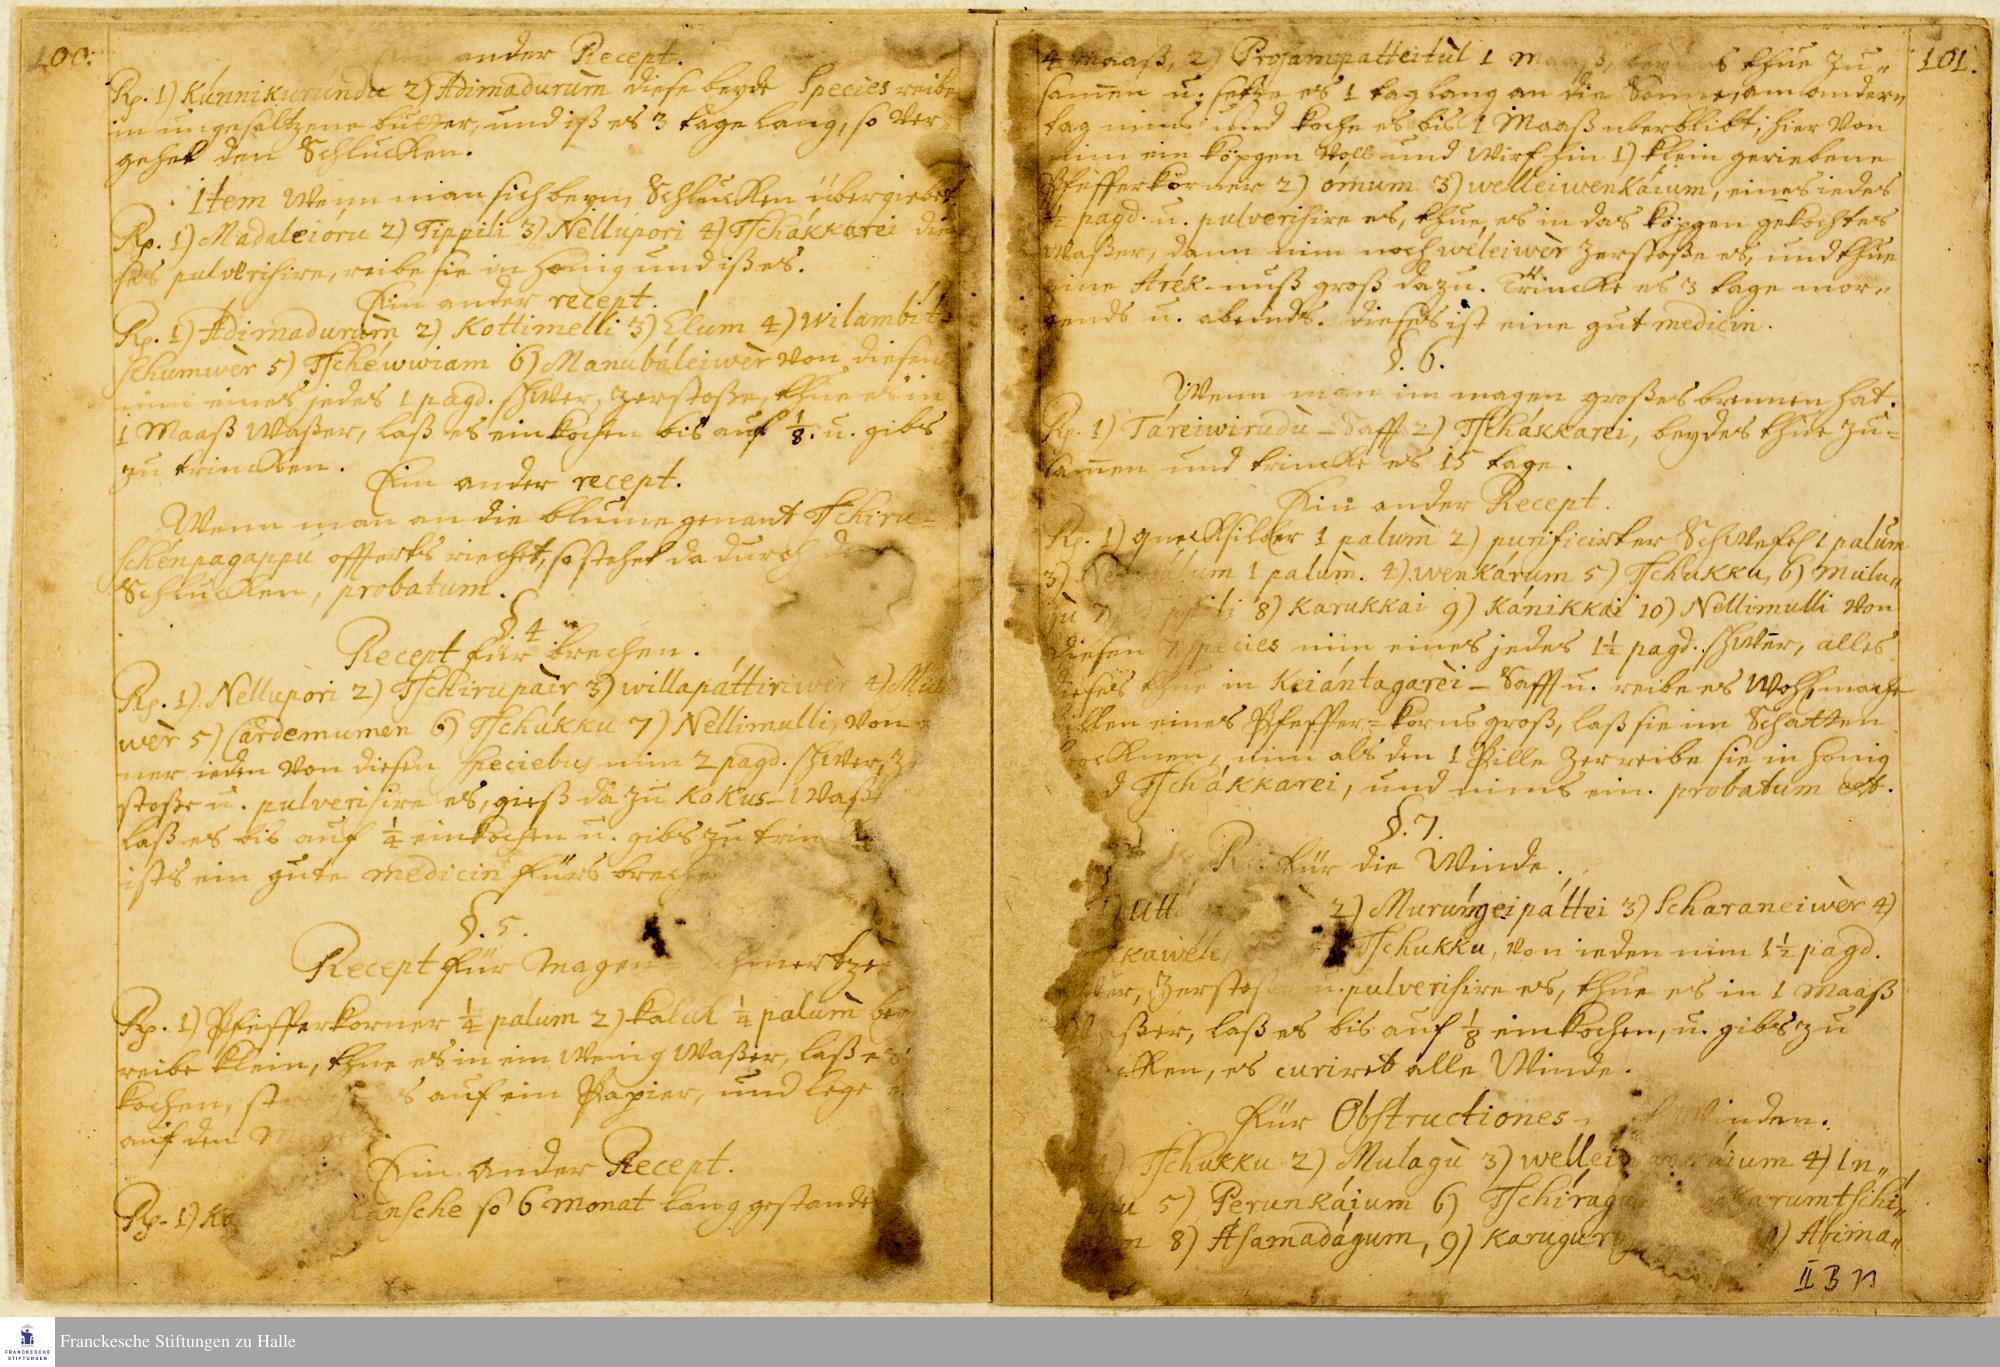 100.
ander Recept.
Rp. 1) Kúnnikurundu 2) Adimadurùm diese beyde Species reibe
in ungesaltzene butter, und iß es 3 tage lang, so ver-
gehet den Schlucken.
Item Wenn man sich beym Schlucken übergiebet
Rp. 1) Madaleióru 2) Tippili 3) Néllúpori 4) Tschákkarei die-
ses pulverisire, reibe sie in honig und iß es.
Ein ander recept.
Rp. 1) Adimadurùm 2) Kottimelli 3) Élum 4) Wilambít-
schumwèr 5) Tschéwwiam 6) Manubáleiwèr von diesen
nim eines jedes 1 pagd. schwer, zerstoße, thue es in
1 Maaß Waßer, laß es einkochen bis auf 1/8. u. gibs
zu trincken.
Ein ander recept.
Wenn man an die blume genant Tschiru-
schénpagappú offters riechet, so stehet dadurch der
Schlucken, probatum.
§. 4.
Recept für brechen.
Rp. 1) Nellúpori 2) Tschirupàir 3) willapáttiriwèr 4)
wèr 5) Cardemumen 6) Tschúkku 7) Nellimulli, von
ner ieden von diesen Speciebus nim 2 pagd. schwer,
stoße u. pulverisire es, gieß dazu Kokus-Waß
laß es bis auf 1/4 einkochen u. gibs zu trin
ists ein gute medicin fürs breche
§. 5.
Recept für Magen-Schmertze
Rp. 1) Pfefferkorner 1/4 palum 2) kalck 1/4 palùm
reibe klein, thue es in ein Wenig Waßer, laß es
kochen, auf ein Papier, und lege
auf den Magen.
Ein ander Recept.
Rp. 1) Kansche so 6 monat lang gestande
101.
4 Maaß, 2) Projampatteitùl 1 Maaß, thue zu-
samen u. setze es 1 tag lang an die Sonne, am andern
tag nims und koche es bis 1 Maaß uberblibt, hier von
nim ein köpgen voll und wirf hin 1) klein geriebene
Pfefferkörner 2) ómum 3) welleiwenkáium, eines iedes
1/2 pagd. u. pulverisire es, thue es in das köpgen gekochtes
Waßer, dann nim noch wéleiwèr zerstoße es, und thue
eine Arék-nuß groß dazu. Trincke es 3 tage mor-
gends u. abends. dieses ist eine gut medicin.
§. 6.
Wenn man im magen großes brennen hat.
Rp. 1) Táreiwirudù-Safft 2) Tschákkarei, beydes thue zu-
samen und trincke es 15 tage.
Ein ander Recept.
Rp. 1) queckßilber 1 palum 2) purificirter Schwefel 1 palum
3) 1 palùm. 4) wenkárum 5) Tschukku, 6) Mulu-
8) Karukkai 9) Kánikkai 10) Nellimulli von
diesen 7 Species nim eines jedes 1 1/2 pagd. schwer, alles
dieses thue in Keiántagarèi-Safft u. reibe es wohl, mache
Pillen eines Pfeffer-korns groß, laß sie im Schatten
trocknen, nim als den 1 Pille zerreibe sie in honig
d Tschákkarei, und nims ein. probatum est.
§. 7.
für die Winde.
2) Murúngeipáttei 3) Scharaneiwèr 4)
Tschukku, von ieden nim 1 1/2 pagd.
schwer, zerstoße u. pulverisire es, thue es in 1 Maaß
Waßer, laß es bis auf 1/8 einkochen, u. gibs zu
cken, es curiret alle Winde.
Für Obstructiones Winden.
1) Tschukku 2) Mulagù 3) wellei káium 4) In-
5) Perunkáium 6) Tschírag Karumtschí-
8) Asamadágum, 9) Karugu Abima-
II B 71
Franckesche Stiftungen zu Halle
FRANCKESCHE
STIFTUNGEN